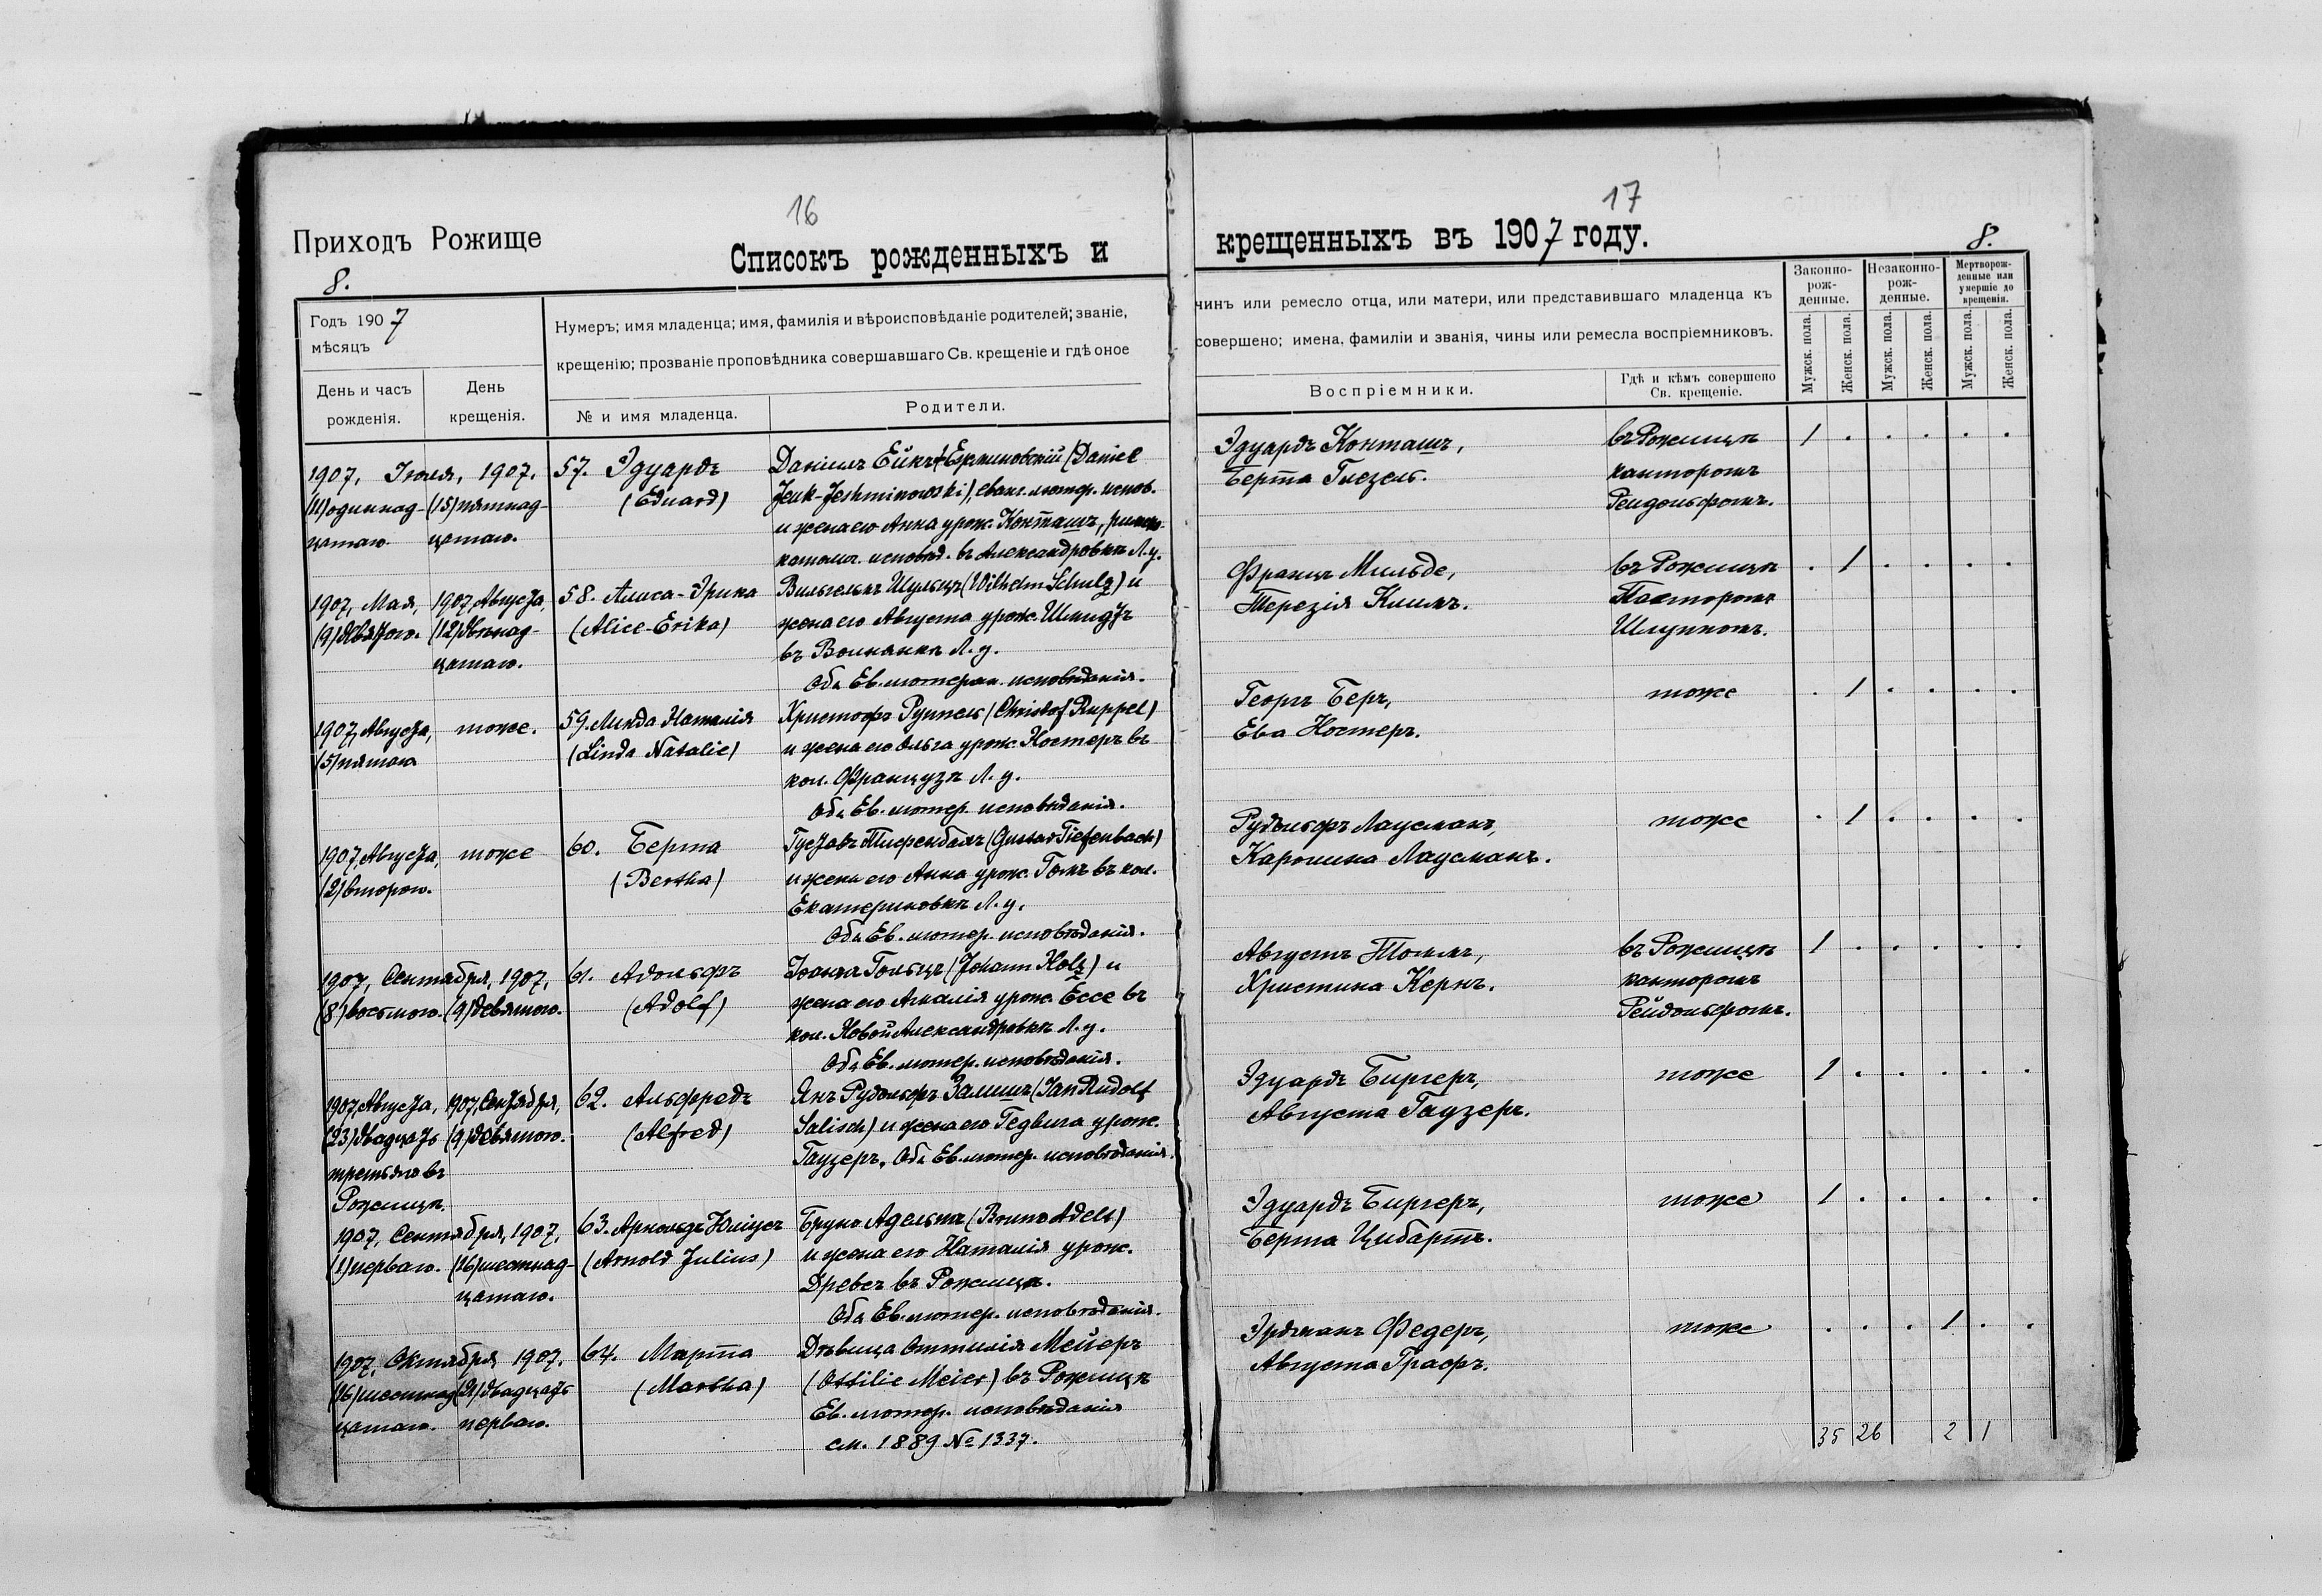 16
Приходъ Рожище
Списокъ рожденныхъ и
8.
Годъ 1907
мѣсяцъ
Нумеръ; имя младенца; имя, фамилія и вѣроисповѣданіе родителей; званіе,
крещенію; прозваніе проповѣдника совершавшаго Св. крещеніе и гдѣ оное
День и часъ
рожденія.
День
крещенія.
№ и имя младенца.
Родители.
1907, Іюля, 1907.
(11) одиннад-
цатаго.
(15) пятнад-
цатаго.
57. Эдуардъ
(Eduard)
Даніилъ Ейкъ-Ешминовскій (Daniel
Jeuk-Jeshminowski), еванг. лютер. испов.
и жена его Анна урож. Конташъ, римско-
католич. исповѣд. въ Александровкѣ Л.у.
1907, Мая,
(9) девятого.
1907, Августа,
(12) двѣнад-
цатаго.
58. Алиса-Эрика
(Alice-Erika)
Вильгельмъ Шульцъ (Wilhelm Schulz) и
жена его Августа урож. Шмидтъ
въ Волнянкѣ Л.у.
Оба Ев. лютеран. исповѣданія.
1907, Августа,
(5) пятого
тоже.
59. Линда Наталія
(Linda Natalie)
Христофъ Руппель (Christof Ruppel)
и жена его Ольга урож. Костеръ въ
кол. Французѣ Л.у.
Оба Ев. лютер. исповѣданія.
1907, Августа,
(2) второго.
тоже
60. Берта
(Bertha)
Густавъ Тифенбахъ (Gustav Tiefenbach)
и жена его Анна урож. Гокъ въ кол.
Екатериновкѣ Л.у.
Оба Ев. лютер. исповѣданія.
1907, Сентября, 1907,
(8) восьмого.
(9) девятого.
61. Адольфъ
(Adolf)
Іоаннъ Гольцъ (Johann Holz) и
жена его Амалія урож. Ессе въ
кол. Новой Александровкѣ Л.у.
Оба Ев. лютер. исповѣданія.
1907, Августа,
(23) двадцать
третьяго въ
Рожищѣ.
1907, Сентября,
(9) девятого.
62. Альфредъ
(Alfred)
Янъ Рудольфъ Залишъ (Jan Rudolf
Salisch) и жена его Гедвига урож.
Гаузеръ, Оба Ев. лютер. исповѣданія.
1907, Сентября, 1907,
(1) перваго.
(16) шестнад-
цатаго.
63. Арнольдъ Юліусъ
(Arnold Julius)
Бруно Адельтъ (Bruno Adelt)
и жена его Наталія урож.
Древсъ въ Рожищѣ.
Оба Ев. лютер. исповѣданія.
1907, Октября 1907.
(16) шестнад
цатаго.
(21) двадцать
перваго.
64. Марта
(Martha)
Дѣвица Оттилія Мейеръ
(Ottilie Meier) въ Рожищѣ
Ев. лютер. исповѣданія
см. 1889 № 1337.
17
крещенныхъ въ 1907 году.
8.
чинъ или ремесло отца, или матери, или представившаго младенца къ
совершено; имена, фамиліи и званія, чины или ремесла воспріемниковъ.
Воспріемники.
Гдѣ и кѣмъ совершено
Св. крещеніе.
Законно-
рож-
денные.
Незаконно-
рож-
денные.
Мертворож-
денные или
умершіе до
крещенія.
Мужск. пола.
Женск. пола.
Мужск. пола.
Женск. пола.
Мужск. пола.
Женск. пола.
Эдуардъ Конташъ,
Берта Глезель.
въ Рожищѣ
канторомъ
Рейдольфомъ.
1 . . . . .
Францъ Мильде,
Терезія Климъ.
въ Рожищѣ
Пасторомъ
Шлуппомъ.
. 1 . . . .
Георгъ Беръ,
Ева Костеръ.
тоже
. 1 . . . .
Рудольфъ Лаусманъ,
Каролина Лаусманъ.
тоже
. 1 . . . .
Августъ Томмъ,
Христина Кернъ.
въ Рожищѣ
канторомъ
Рейдольфомъ.
1 . . . . .
Эдуардъ Биргеръ,
Августа Гаузеръ.
тоже
1 . . . . .
Эдуардъ Биргеръ,
Берта Цибартъ.
тоже
1 . . . . .
Эрдманъ Федеръ,
Августа Графъ.
тоже
. . . 1 . .
35 26 2 1